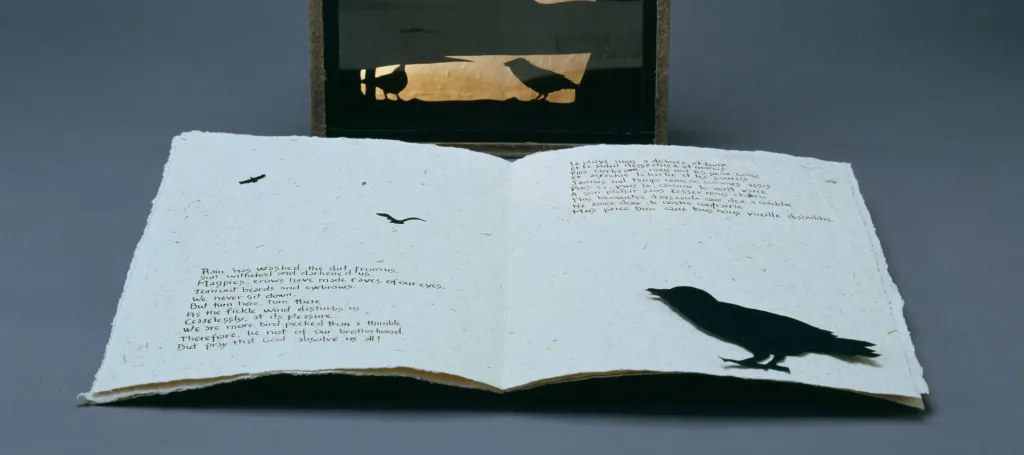 Rain has washed the dirt from us,
Sun withered and darkened us.
Magpies, crows have made caves of our eyes,
Torn out beards and eyebrows.
We never sit down,
But turn here, turn there
As the fickle wind disturbs us
Ceaselessly, at its pleasure.
We are more bird-pecked than a thimble
Therefore, be not of our brotherhood
But pray that God absolve us all!
La pluie nous a
et le soleil dessechiez et noircis
Pies, corbeaux, nous ont les yeux
Et arrachie la barbe et les sourcis
Jamais nul temps nous ne sommes assis
Puis ça, puis la, comme le vent varie
A son plaisir sans cesser nous charie
Plus becquetez d'oiseaulx que dez a couldre
Ne soiez donc de nostre confrairie
Mais priez Dieu que tous nous vueille absouldre